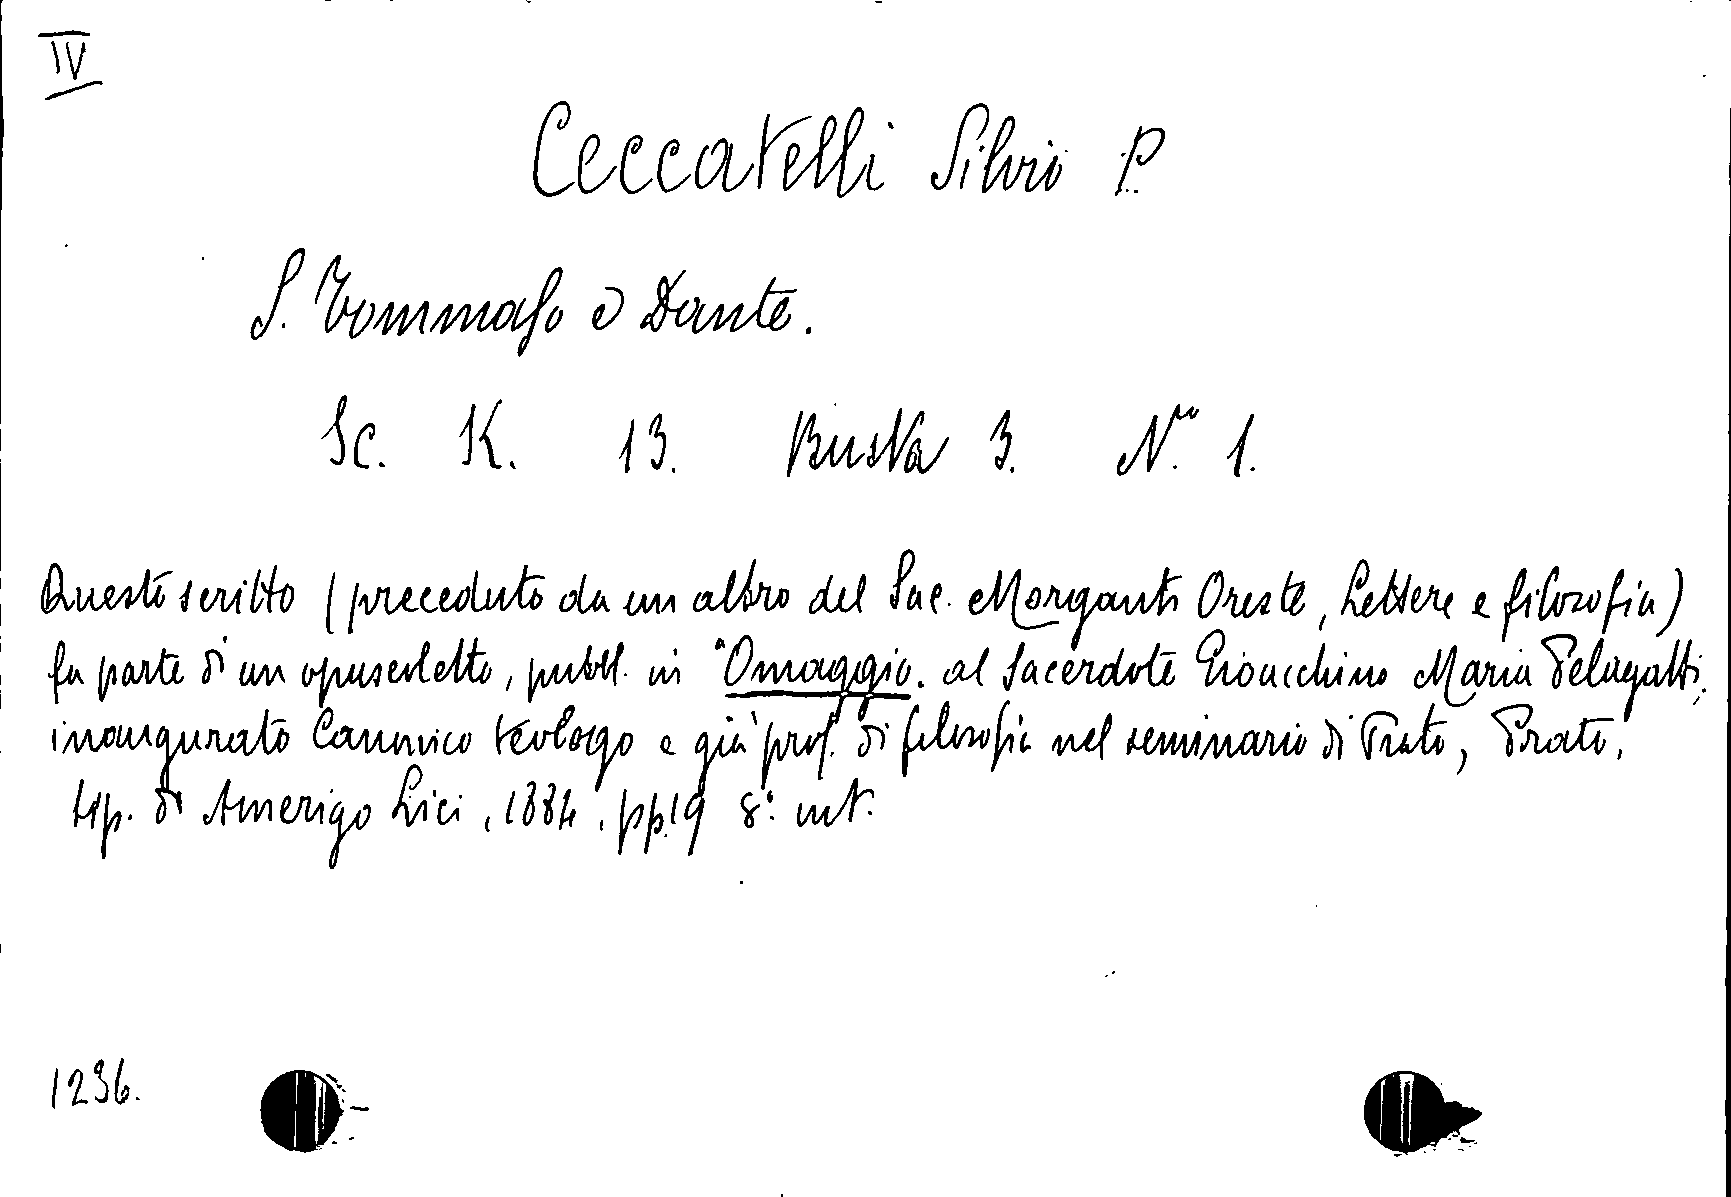 IV
Ceccatelli Silvio P.
S. Tommaso e Dante.
Sc. K. 13. Busta 3. N.ro 1.
Questo scritto (preceduto da un altro del Sac. Morganti Oreste, Lettere e filosofia)
fa parte di un opuscoletto, pubbl. in "Omaggio. al Sacerdote Gioacchino Maria Pelagatti,
inaugurato Canonico teologo e già prof. di filosofia nel seminario di Prato, Prato,
tip. di Amerigo Lici, 1884, pp. 19 8.°
1236.